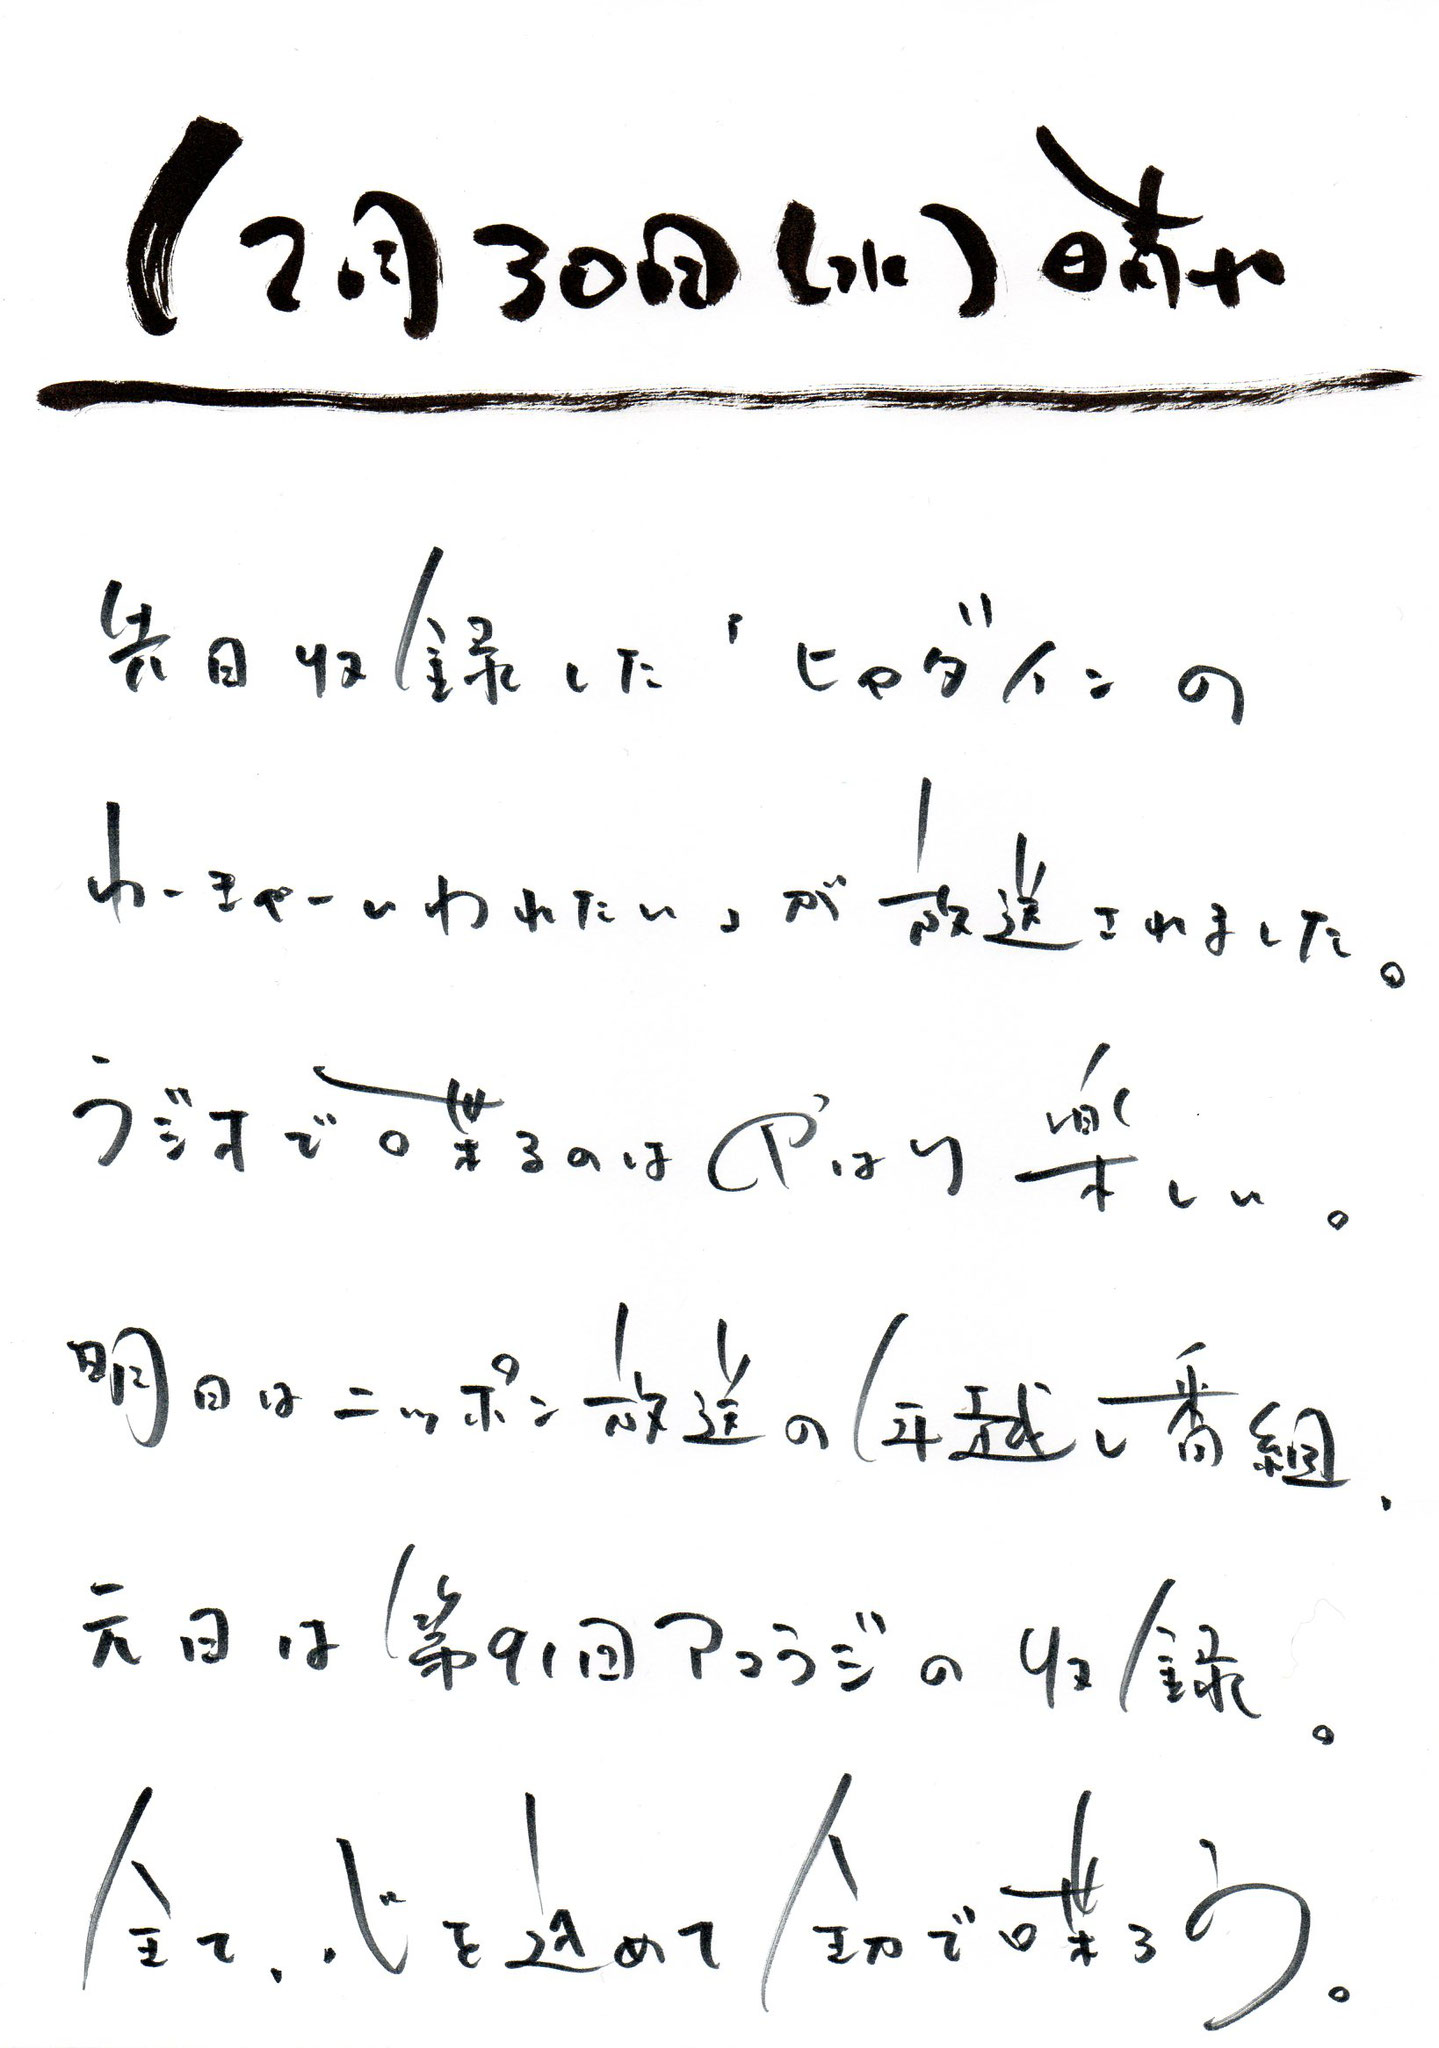 12月30日(水)晴れ
先日収録した「ヒャダインの
わーきゃーいわれたい」が放送されました。
ラジオで喋るのはやはり楽しい。
明日はニッポン放送の年越し番組、
元日は第91回アコラジの収録。
全て、心を込めて全力で喋ろう。